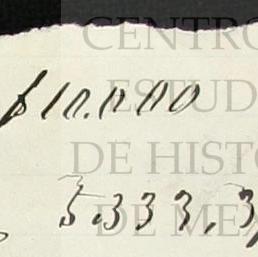 CENTRO
ESTUD
$10.000
DE HISTO
5.333.3
DE ME